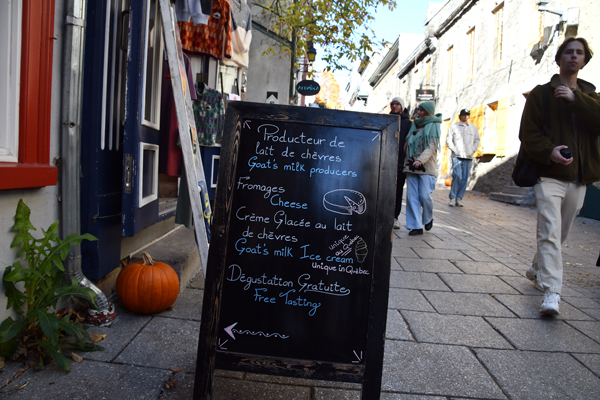 Producteur de
lait de chèvres
Goat's milk producers
Fromages
Cheese
Crème Glacée au lait
de chèvres
Goat's milk Ice cream
unique au
Québec
unique in Québec
Dégustation Gratuite
Free Tasting